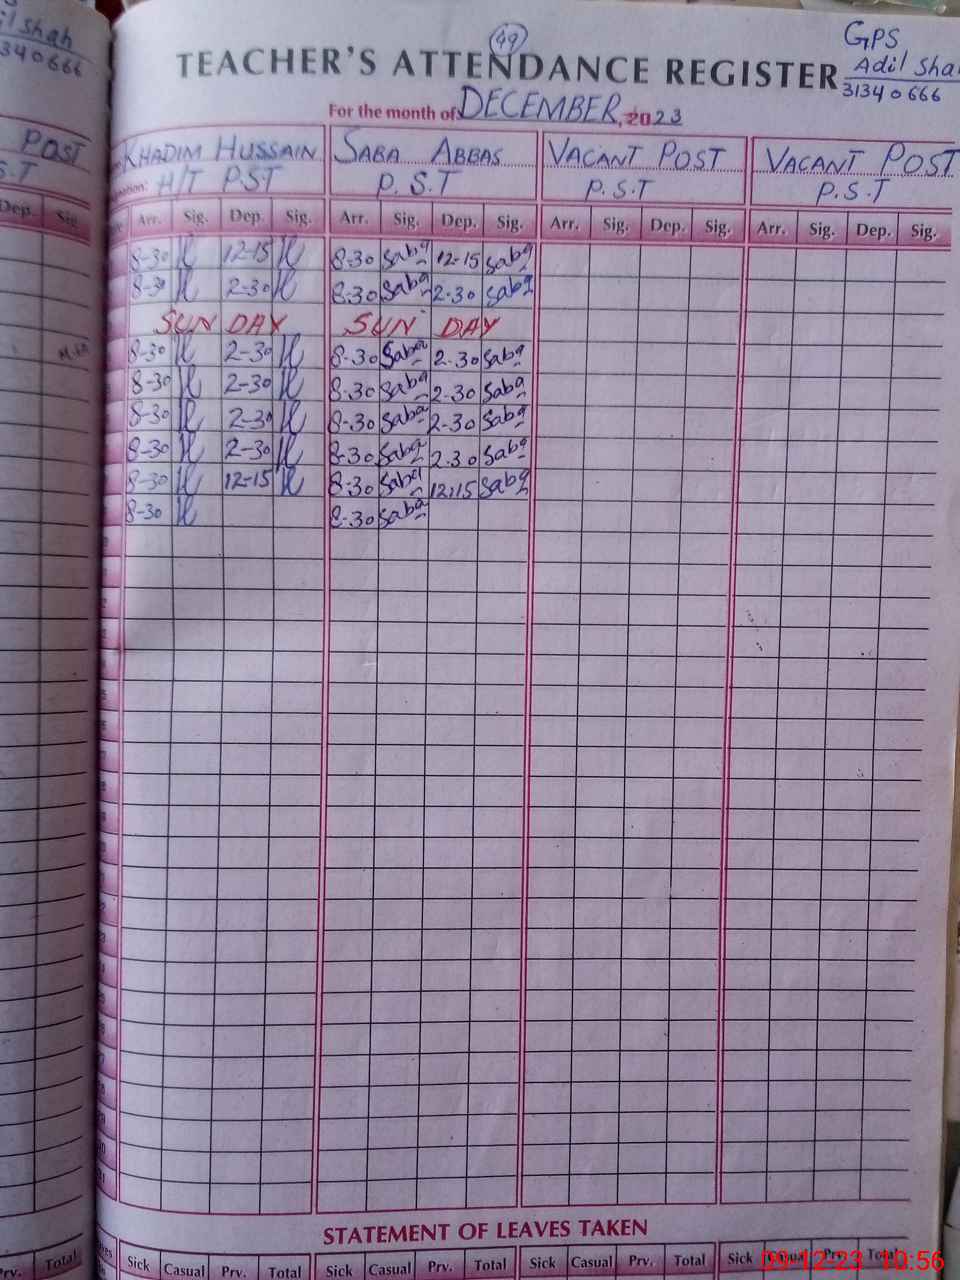 il Shah
340666
POST
S.T
Dep. Sig.
49
TEACHER'S ATTENDANCE REGISTER
GPS
Adil Sha
31340666
For the month of DECEMBER, 2023
KHADIM HUSSAIN SABA ABBAS VACANT POST VACANT POST
H/T PST P.S.T P.S.T P.S.T
Arr. Sig. Dep. Sig. Arr. Sig. Dep. Sig. Arr. Sig. Dep. Sig. Arr. Sig. Dep. Sig.
8-30 12-15 8-30 Saba 12-15 Saba
8-30 2-30 8-30 Saba 2-30 Saba
SUN DAY SUN DAY
8-30 2-30 8-30 Saba 2-30 Saba
8-30 2-30 8-30 Saba 2-30 Saba
8-30 2-30 8-30 Saba 2-30 Saba
8-30 2-30 8-30 Saba 2-30 Saba
8-30 12-15 8-30 Saba 12:15 Saba
8-30 8-30 Saba
STATEMENT OF LEAVES TAKEN
Prv. Total Sick Casual Prv. Total Sick Casual Prv. Total Sick Casual Prv. Total Sick Casual Prv. Total
09-12-23 10:56